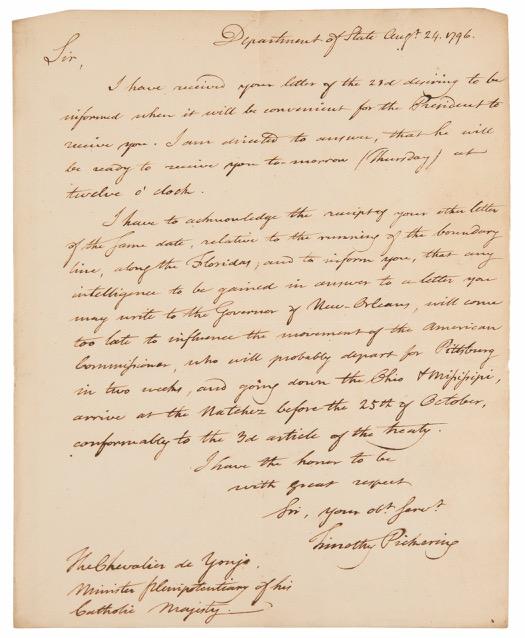 Department of State Augt. 24. 1796.
Sir,
I have received your letter of the 23d desiring to be
informed when it will be convenient for the President to
receive you. I am directed to answer, that he will
be ready to receive you to-morrow (Thursday) at
twelve o'clock.
I have to acknowledge the receipt of your other letter
of the same date, relative to the running of the boundary
line, along the Floridas, and to inform you, that any
intelligence to be gained in answer to a letter you
may write to the Governor of New-Orleans, will come
too late to influence the movement of the American
Commissioner, who will probably depart for Pittsburg
in two weeks, and going down the Ohio & Missisippi,
arrive at the Natchez before the 25th of October,
conformably to the 3d article of the treaty.
I have the honor to be
with great respect
Sir, your obt. servt.
Timothy Pickering
The Chevalier de Yrujo,
Minister plenipotentiary of his
Catholic Majesty.